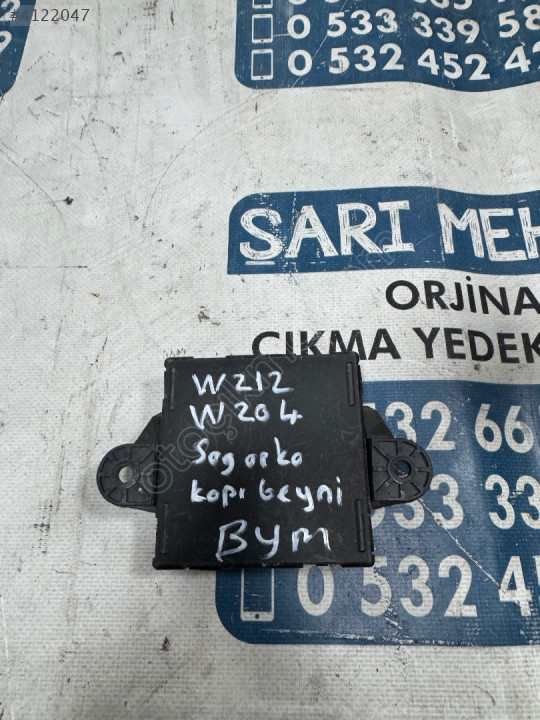 #4122047
0 533 339 58
0 532 452 42
SARI MEH
ORJİNA
ÇIKMA YEDEK
532 66
533 33
0 532 45
W212
W204
Sag arka
kapı beyni
BYM